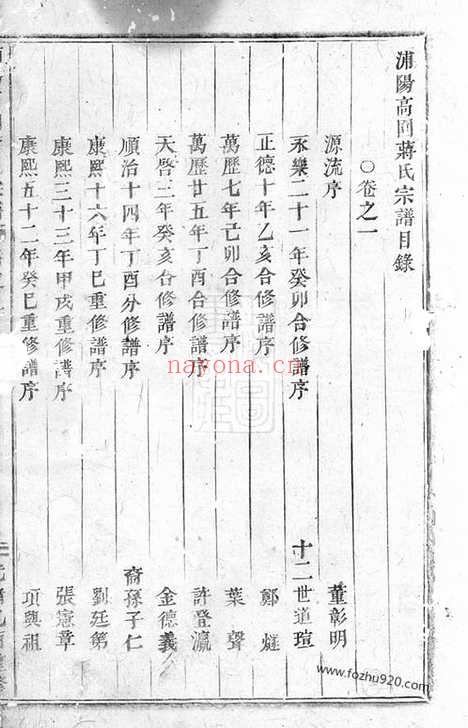 浦陽高同蔣氏宗譜目錄
○卷之一
源流序 董彰明
永樂二十一年癸卯合修譜序 十二世道瑄
正德十年乙亥合修譜序 鄭燧
萬歷七年己卯合修譜序 葉聲
萬歷廿五年丁酉合修譜序 許登瀛
天啓三年癸亥合修譜序 金德義
順治十四年丁酉分修譜序 裔孫子仁
康熙十六年丁巳重修譜序 劉廷第
康熙三十三年甲戌重修譜序 張憲章
康熙五十二年癸巳重修譜序 項興祖
nayona.cn
www.fozhu920.com